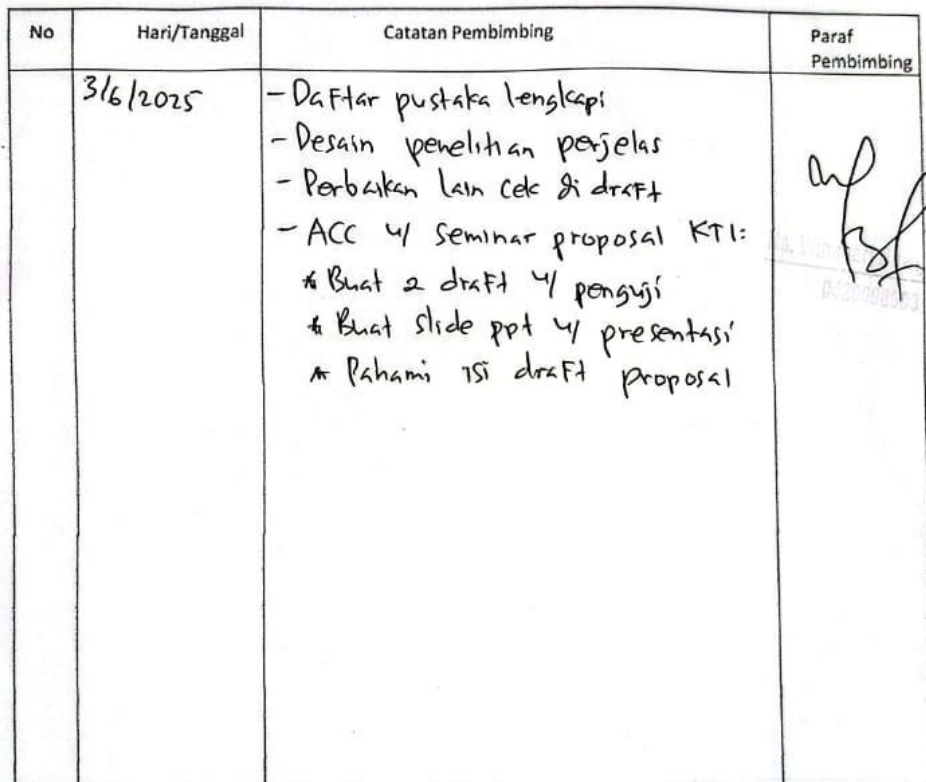 No Hari/Tanggal Catatan Pembimbing Paraf
Pembimbing
3/6/2025 - Daftar pustaka lengkapi
- Desain penelitian perjelas
- Perbaikan lain cek di draft
- ACC u/ seminar proposal KTI:
* Buat 2 draft u/ penguji
* Buat slide ppt u/ presentasi
* Pahami isi draft proposal